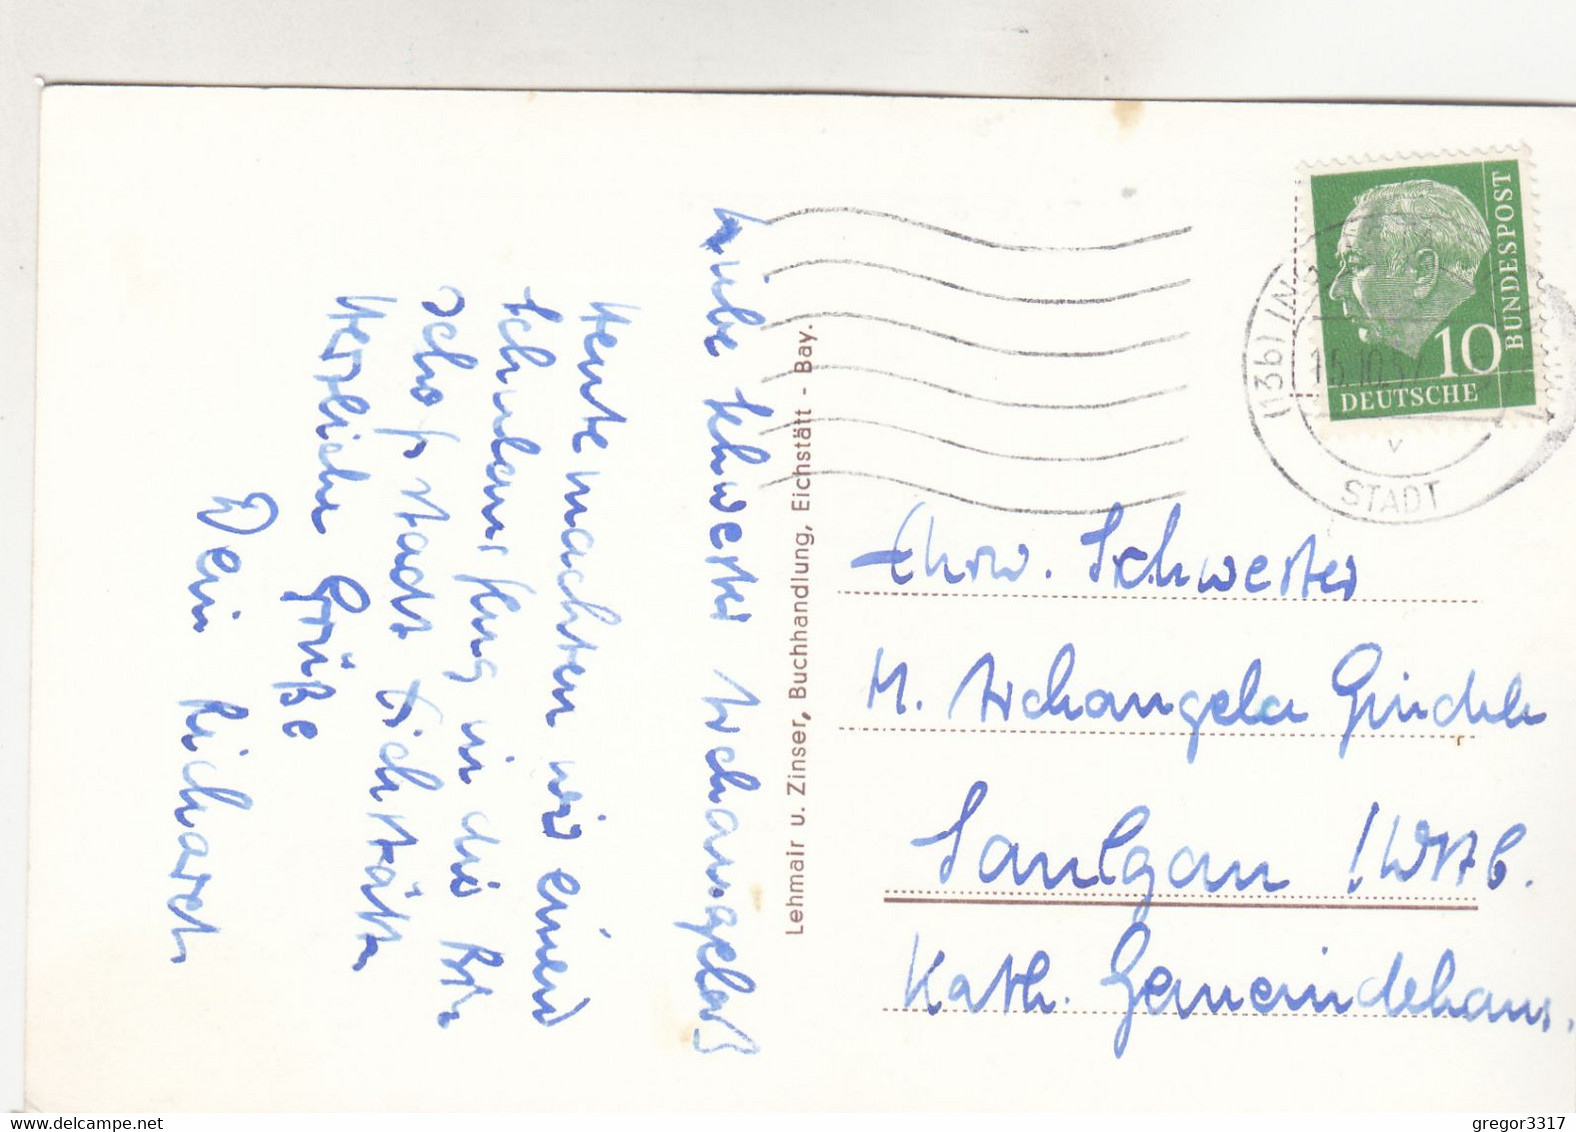 Liebe Schwester Archangela!
Heute machten wir einen
Schulausflug in die Bi-
schofsstadt Eichstätt.
Herzliche Grüße
Dein Richard
Lehmair u. Zinser, Buchhandlung, Eichstätt - Bay.
BUNDESPOST
10
DEUTSCHE
(13b) INGOL
15.10.57
v
STADT
Ehrw. Schwester
M. Archangela
Saulgau /Wttb.
Kath. Gemeindehaus.
gregor3317